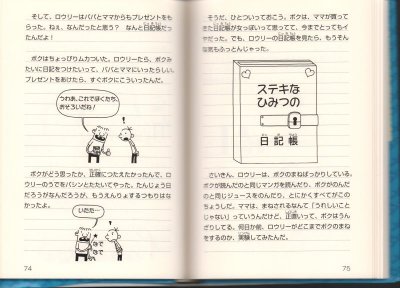 そして、ロウリーはパパとママからもプレゼントをもらった。ねぇ、なんだったと思う? なんと日記帳だったんだよ!
ボクはちょっぴりムカついた。ロウリーたら、ボクみたいに日記をつけたいって、パパとママにいったらしい。プレゼントをあけたら、すぐボクにこういったんだ。
うわあ、これでぼくたち、
おそろいだね!
ボクがどう思ったか、正確につたえたかったんで、ロウリーのうでをバシンとたたいてやった。たんじょう日だろうがなんだろうが、もうえんりょするつもりはなかったよ。
いたた…
なで
なで
74
そうだ、ひとついっておこう。ボクは、ママが買ってきた日記帳が女っぽいって思ってて、今までとってもイヤだった。でも、ロウリーの日記帳を見たら、もうそんな気もふっとんじゃった。
ステキな
ひみつの
日記帳
さいきん、ロウリーは、ボクのまねばっかりしている。ボクが読んだのと同じマンガを読んだり、ボクがのんだのと同じジュースをのんだり、とにかくすべてがこのちょうしだ。ママは、まねされるなんて「うれしいことじゃない」っていうんだけど、正直いって、ボクはうんざりしてる。何日か前、ロウリーがどこまでボクのまねをするのか、実験してみたんだ。
75